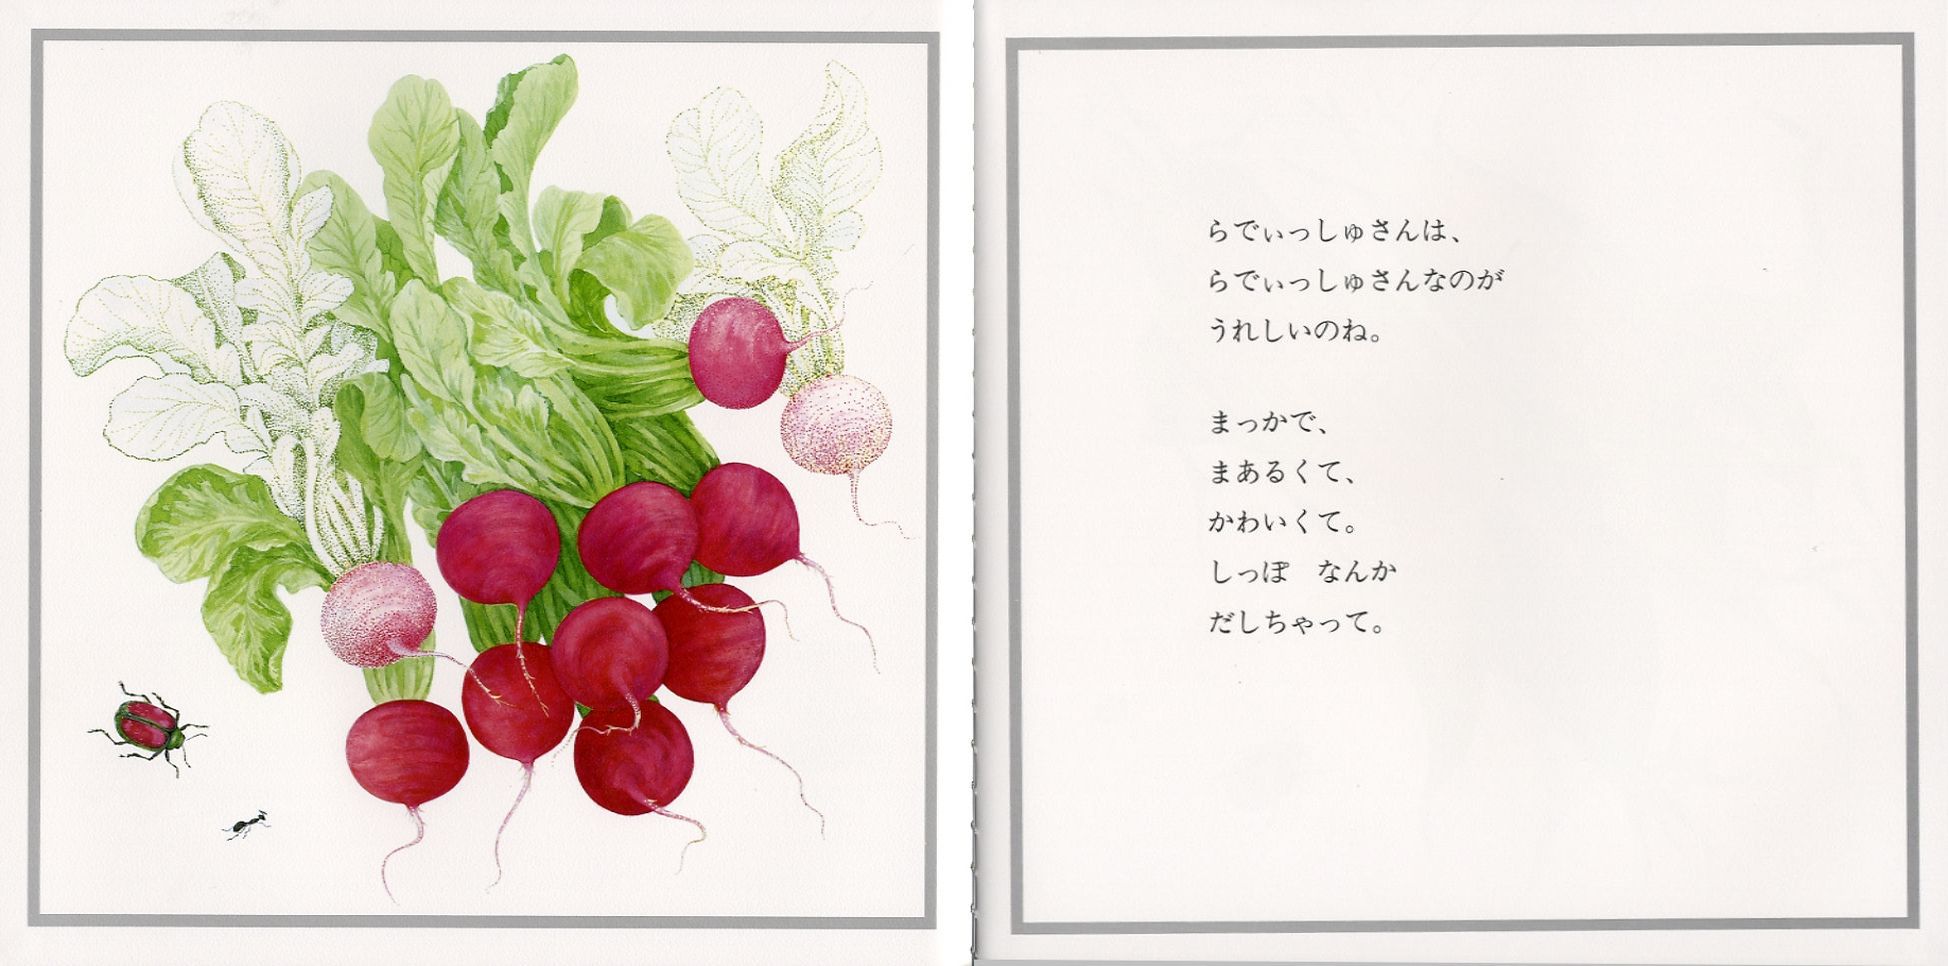 らでぃっしゅさんは、
らでぃっしゅさんなのが
うれしいのね。
まっかで、
まあるくて、
かわいくて。
しっぽ　なんか
だしちゃって。